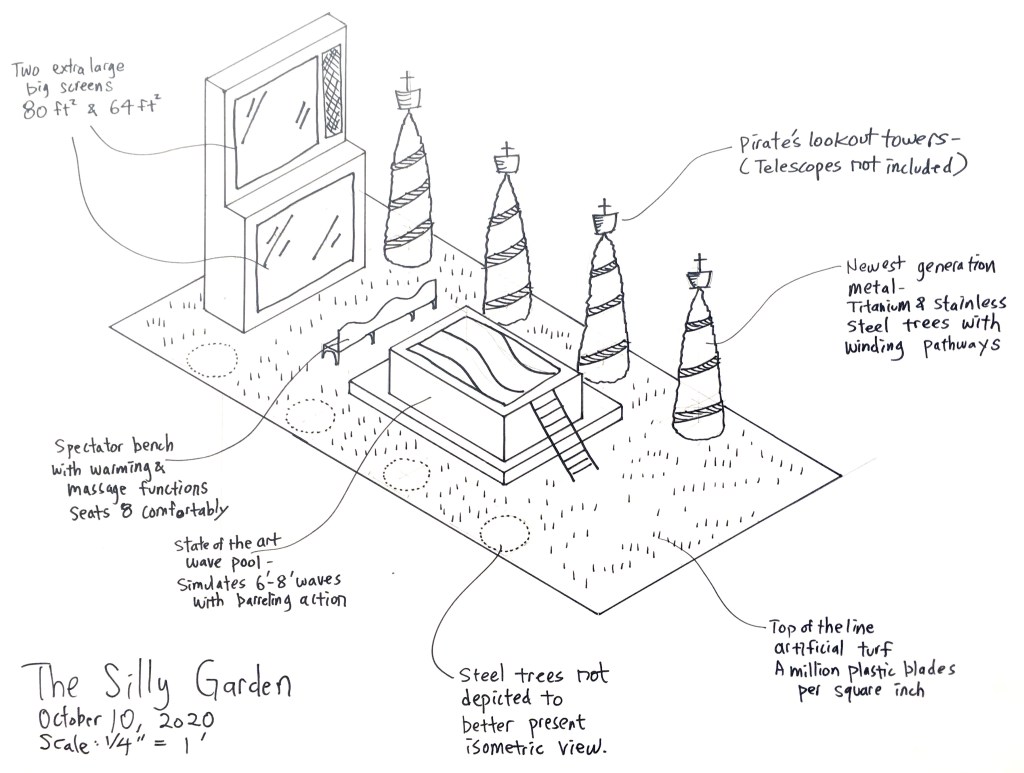 Two extra large
big screens
80 ft² & 64 ft²
Pirate's lookout towers-
(Telescopes not included)
Newest generation
metal-
Titanium & Stainless
Steel trees with
winding pathways
Spectator bench
with warming &
massage functions
Seats 8 comfortably
State of the art
wave pool-
Simulates 6'-8' waves
with barreling action
Steel trees not
depicted to
better present
isometric view.
Top of the line
artificial turf
A million plastic blades
per square inch
The Silly Garden
October 10, 2020
Scale: 1/4" = 1'